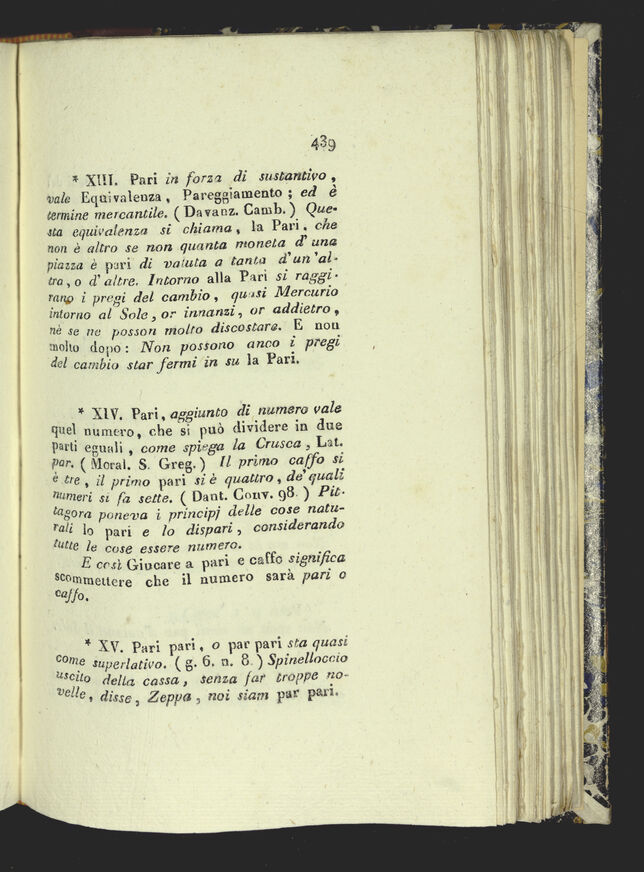 439
* XIII. Pari in forza di sustantivo,
vale Equivalenza, Pareggiamento; ed è
termine mercantile. (Davanz. Camb.) Que-
sta equivalenza si chiama, la Pari, che
non è altro se non quanta moneta d'una
piazza è pari di valuta a tanta d'un'al-
tra, o d'altre. Intorno alla Pari si raggi-
rano i pregi del cambio, quasi Mercurio
intorno al Sole, or innanzi, or addietro,
nè se ne posson molto discostare. E non
molto dopo: Non possono anco i pregi
del cambio star fermi in su la Pari.
* XIV. Pari, aggiunto di numero vale
quel numero, che si può dividere in due
parti eguali, come spiega la Crusca, Lat.
par. (Moral. S. Greg.) Il primo caffo si
è tre, il primo pari si è quattro, de' quali
numeri si fa sette. (Dant. Conv. 98.) Pit-
tagora poneva i principj delle cose natu-
rali lo pari e lo dispari, considerando
tutte le cose essere numero.
E così Giucare a pari e caffo significa
scommettere che il numero sarà pari o
caffo.
* XV. Pari pari, o par pari sta quasi
come superlativo. (g. 6. n. 8.) Spinelloccio
uscito della cassa, senza far troppe no-
velle, disse, Zeppa, noi siam par pari.